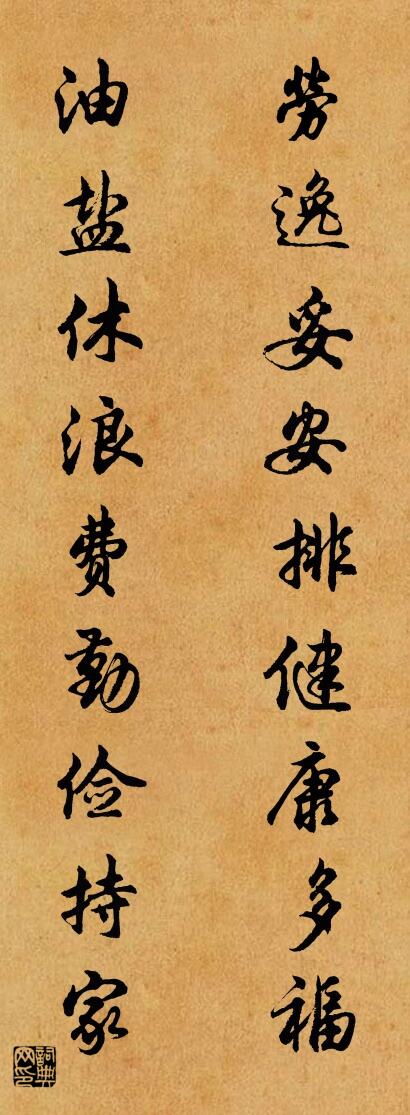 勞逸妥安排健康多福
油盐休浪费勤俭持家
詞典网印